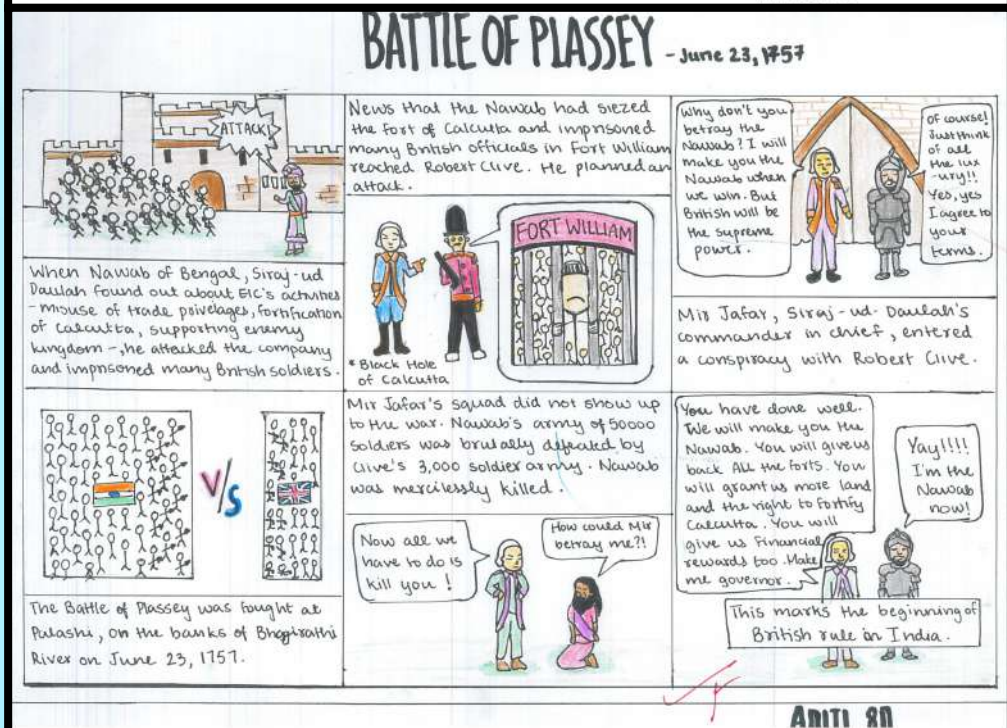 BATTLE OF PLASSEY - June 23, 1757
ATTACK!
When Nawab of Bengal, Siraj-ud
Daulah found out about EIC's activities
- misuse of trade privelages, fortification
of Calcutta, supporting enemy
kingdom -, he attacked the company
and imprisoned many British soldiers.
News that the Nawab had siezed
the fort of Calcutta and imprisoned
many British officials in Fort William
reached Robert Clive. He planned an
attack.
FORT WILLIAM
*Black Hole
of Calcutta
Why don't you
betray the
Nawab? I will
make you the
Nawab when
we win. But
British will be
the supreme
power.
Of course!
Just think
of all
the lux
-ury!!
Yes, yes
I agree to
your
terms.
Mir Jafar, Siraj-ud-Daulah's
commander in chief, entered
a conspiracy with Robert Clive.
V/S
The Battle of Plassey was fought at
Palashi, on the banks of Bhagirathi
River on June 23, 1757.
Mir Jafar's squad did not show up
to the war. Nawab's army of 50000
soldiers was brutally defeated by
Clive's 3,000 soldier army. Nawab
was mercilessly killed.
Now all we
have to do is
kill you!
How could Mir
betray me?!
You have done well.
We will make you the
Nawab. You will give us
back All the forts. You
will grant us more land
and the right to fortify
Calcutta. You will
give us financial
rewards too. Make
me governor.
Yay!!!!
I'm the
Nawab
now!
This marks the beginning of
British rule in India.
ADITI 8D